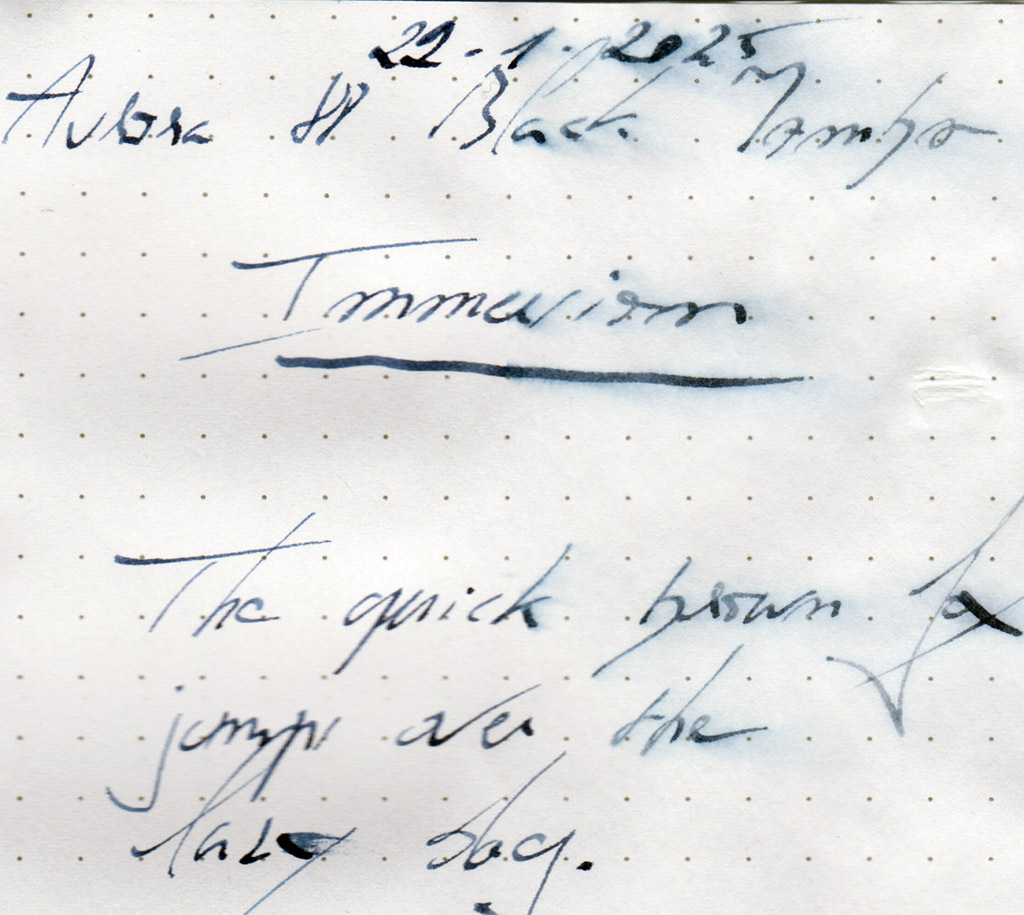 22-1-2025
Aurora 88 Black Tempo
Immersion
The quick brown fox
jumps over the
lazy dog.